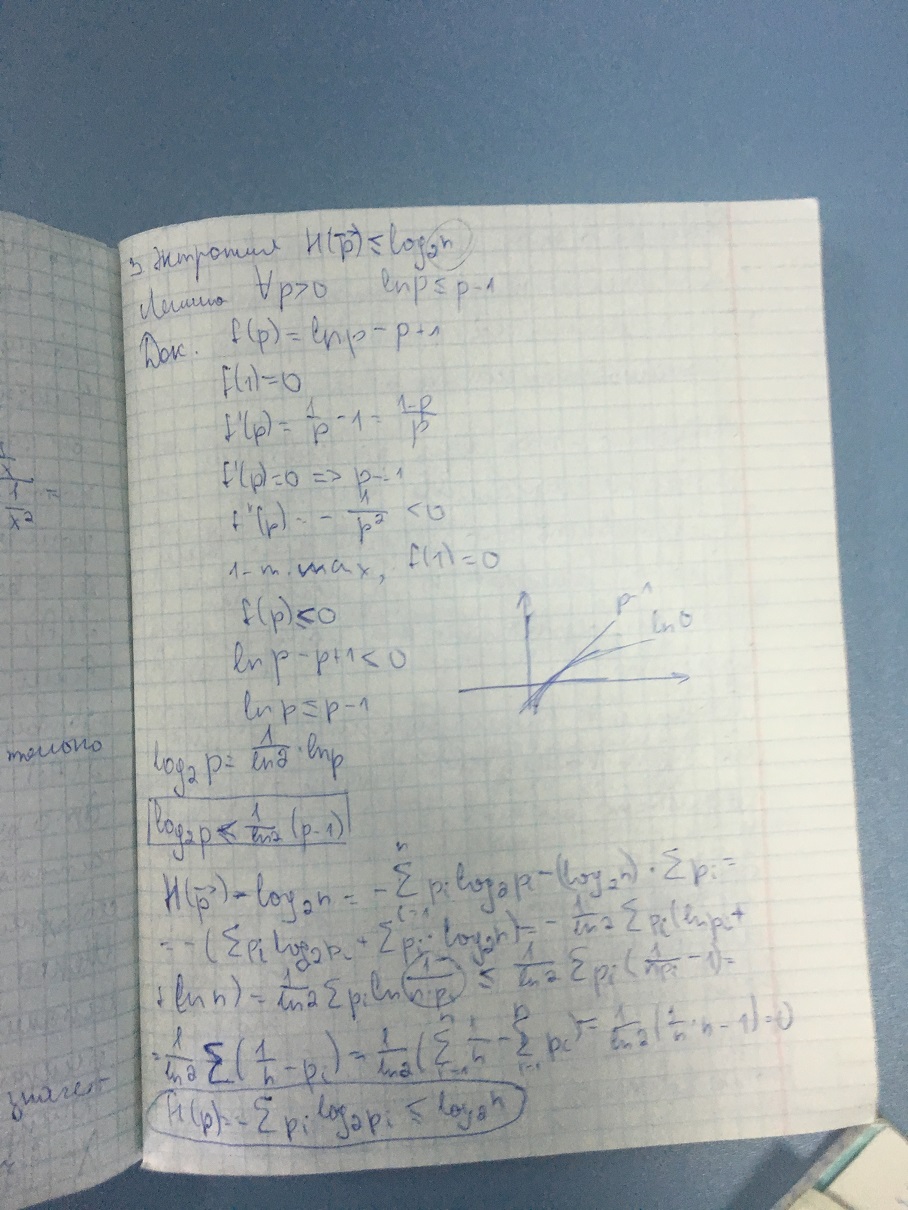 3) Энтропия H(p⃗) ≤ log₂n
Лемма ∀p>0 ln p ≤ p-1
Док. f(p) = ln p - p+1
f(1)=0
f'(p) = 1/p - 1 = (1-p)/p
f'(p)=0 => p=1
f''(p) = - 1/p² < 0
1 - т. max, f(1)=0
f(p) ≤ 0
p-1
ln p - p+1 < 0
ln p ≤ p-1
log₂p = 1/ln2 · ln p
log₂p ≤ 1/ln2 (p-1)
H(p⃗) - log₂n = - Σ_{i=1}^{n} pᵢ log₂pᵢ - (log₂n) · Σ pᵢ =
= - (Σ pᵢ log₂pᵢ + Σ pᵢ · log₂n) = - 1/ln2 Σ pᵢ (ln pᵢ +
+ ln n) = 1/ln2 Σ pᵢ ln (1/(n·pᵢ)) ≤ 1/ln2 Σ pᵢ (1/(npᵢ) - 1) =
= 1/ln2 Σ (1/n - pᵢ) = 1/ln2 (Σ_{i=1}^{n} 1/n - Σ_{i=1}^{n} pᵢ) = 1/ln2 (1/n · n - 1) = 0
H(p) = - Σ pᵢ log₂pᵢ ≤ log₂n
только
значет
1/x² =